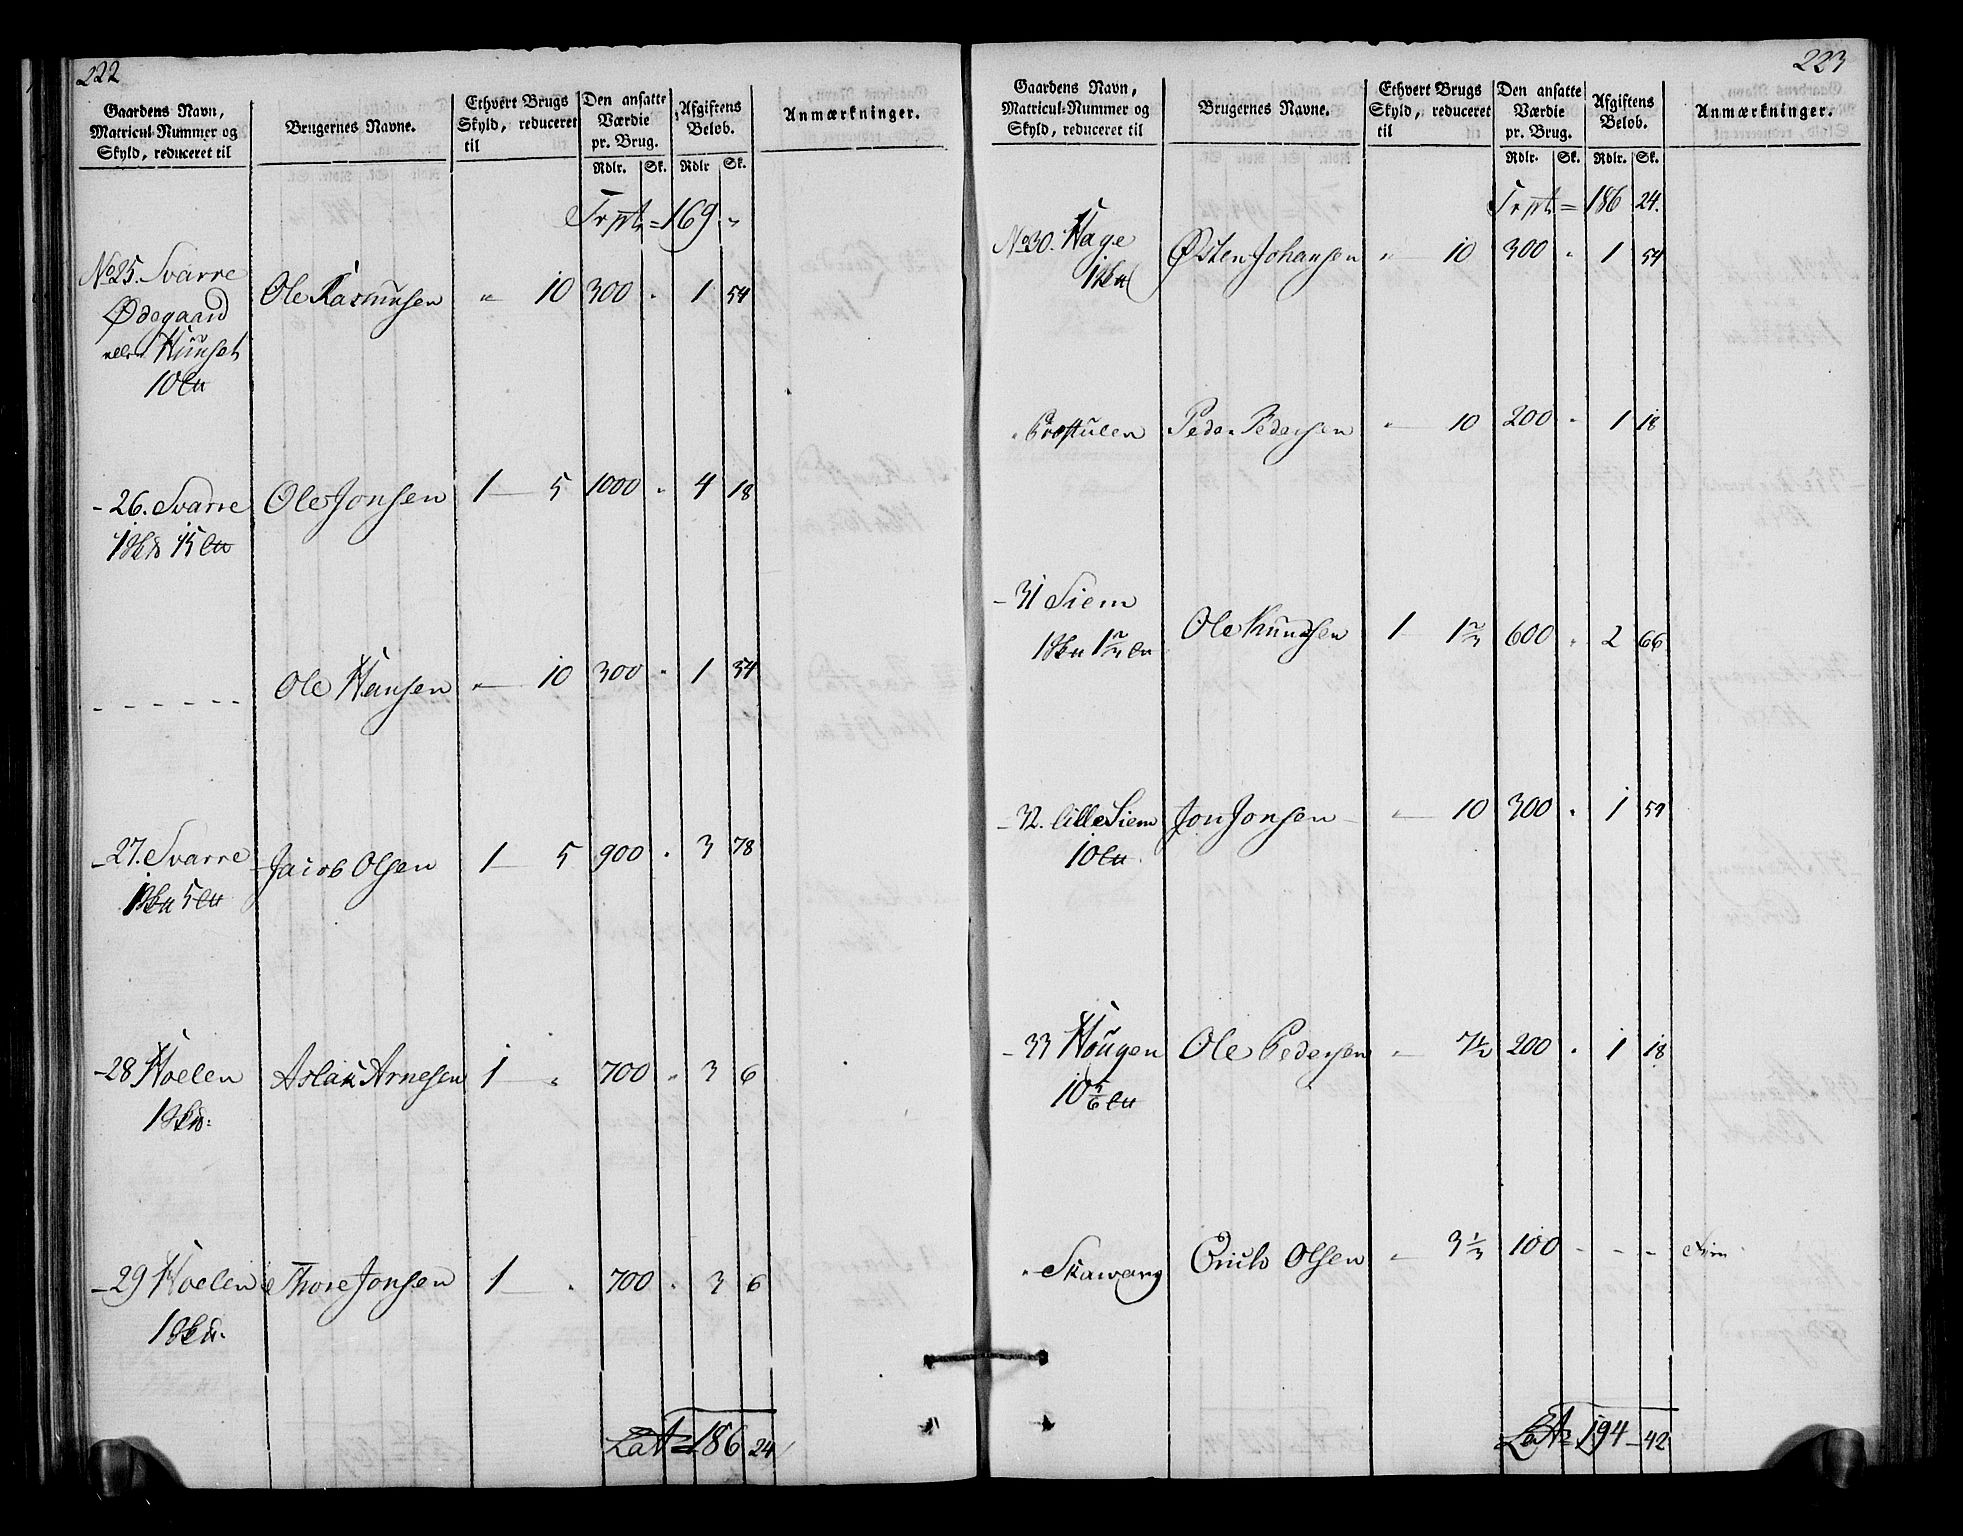 222
Gaardens Navn, Matricul-Nummer og Skyld, reduceret til | Brugernes Navne. | Ethvert Brugs Skyld, reduceret til | Den ansatte Værdie pr. Brug. | Afgiftens Beløb. | Anmærkninger.
Rdlr. Sk. Rdlr Sk.
Trpt = 169 "
No 25. Svarre Ole Rasmusen " 10 300 " 1 54
Ødegaard
eller Hunset
10
- 26. Svarre Ole Jonsen 1 — 5 1000 " 4 18
1 15
- - - - - - Ole Hansen " — 10 300 " 1 54
- 27. Svarre Jacob Olsen 1 — 5 900 " 3 78
1 5
- 28 Hoelen Aslak Arnesen 1 — " 700 " 3 6
1
- 29 Hoelen Thore Jonsen 1 — " 700 " 3 6
1
Lat = 186 24
223
Gaardens Navn, Matricul-Nummer og Skyld, reduceret til | Brugernes Navne. | Ethvert Brugs Skyld, reduceret til | Den ansatte Værdie pr. Brug. | Afgiftens Beløb. | Anmærkninger.
Rdlr. Sk. Rdlr. Sk.
Trpt = 186 24.
No 30. Hage Østen Johansen " 10 300 " 1 54
1
" Peder Pedersen " 10 200 " 1 18
- 31 Siem Ole Knudsen 1 — 1 2/3 600 " 2 66
1 1 2/3
- 32. Lille Siem Jon Jonsen — " 10 300 " 1 54
10
- 33 Hougen Ole Pedersen " 7 1/2 200 " 1 18
10 5/6
" Skawang Olsen " 3 1/3 100 - - -
Lat = 194 - 42